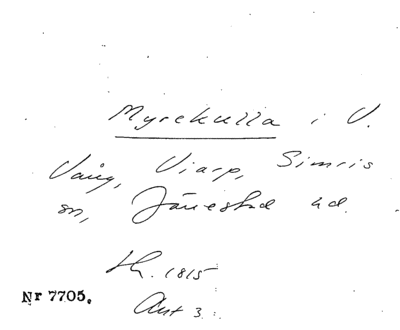 Myrekulla i V.
Vång, Viarp, Simris
sn, Järrestad hd.
Lh. 1815
Akt 3.
Nr 7705.